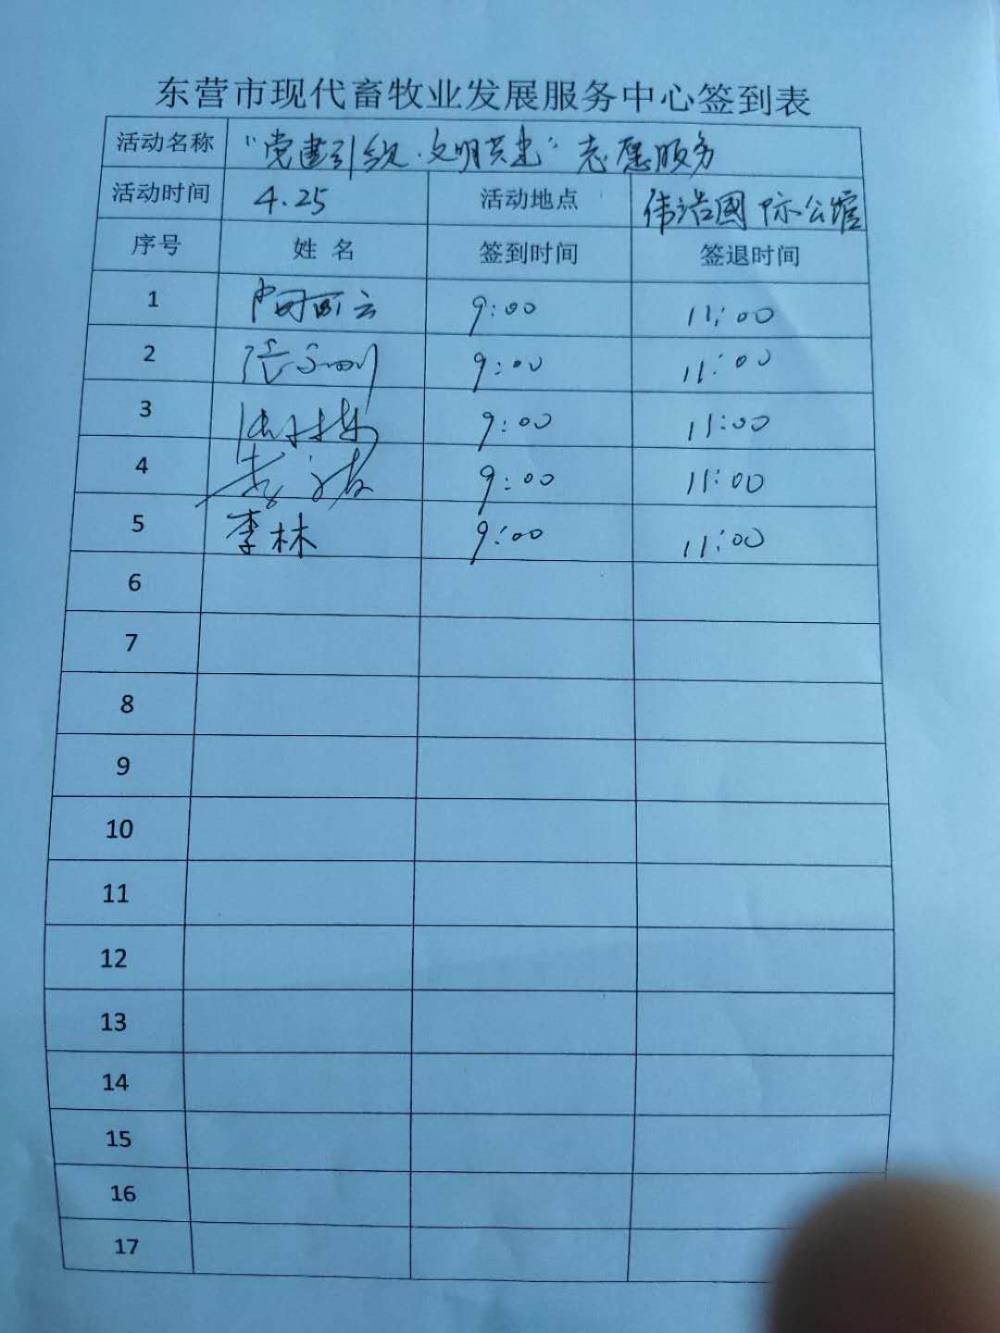 东营市现代畜牧业发展服务中心签到表
活动名称 "党建引领·文明共建"志愿服务
活动时间 4.25 活动地点 伟浩國际公馆
序号 姓 名 签到时间 签退时间
1 9:00 11:00
2 9:00 11:00
3 9:00 11:00
4 9:00 11:00
5 李林 9:00 11:00
6
7
8
9
10
11
12
13
14
15
16
17